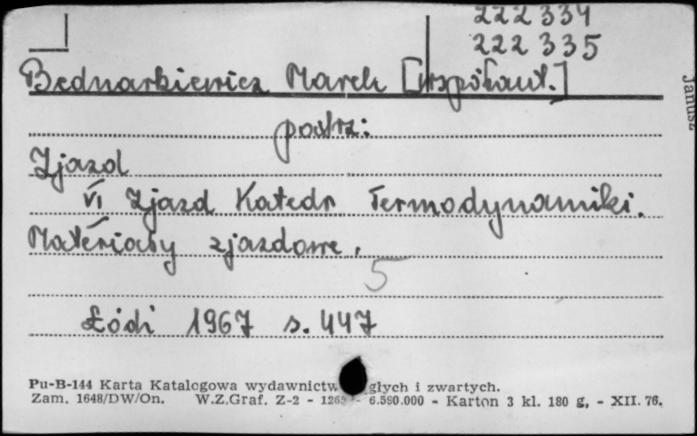 222 334
222 335
Bednarkiewicz Marek [współaut.]
Janusz
patrz:
Zjazd
VI Zjazd Katedr Termodynamiki.
Materiały zjazdowe.
5
Łódź 1967 s. 447
Pu-B-144 Karta Katalogowa wydawnictw głych i zwartych.
Zam. 1648/DW/On. W.Z.Graf. Z-2 - 6.590.000 - Karton 3 kl. 180 g, - XII. 76.